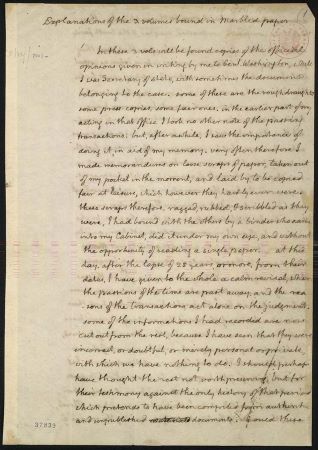 Explanations of the 3. volumes bound in Marbled paper
In these 3 vols will be found copies of the official
opinions given in writing by me to Genl. Washington, while
I was Secretary of state, with sometimes the documents
belonging to the case. some of these are the rough draughts,
some press copies, some fair ones. in the earlier part of my
acting in that office I took no other note of the passing
transactions: but, after awhile, I saw the importance of
doing it, in aid of my memory. very often therefore I
made memorandums on loose scraps of paper, taken out
of my pocket in the moment, and laid by to be copied
fair at leisure, which however they hardly ever were.
these scraps therefore, ragged, rubbed, & scribbled as they
were, I had bound with the others by a binder who came
into my Cabinet, did it under my own eye, and without
the opportunity of reading a single paper. at this
day, after the lapse of 25 years, or more, from their
dates, I have given to the whole a calm revisal, when
the passions of the time are past away, and the rea-
sons of the transactions act alone on the judgment.
some of the informations I had recorded are now
cut out from the rest, because I have seen that they were
incorrect, or doubtful, or merely personal or private,
with which we have nothing to do. I should perhaps
have thought the rest not worth preserving, but for
their testimony against the only history of that period
which pretends to have been compiled from authentic
and unpublished documents. could these
37839